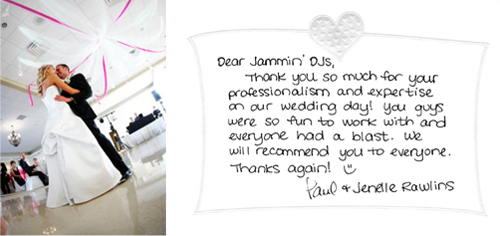 Dear Jammin' DJs,
Thank you so much for your
professionalism and expertise
on our wedding day! you guys
were so fun to work with and
everyone had a blast. we
will recommend you to everyone.
Thanks again!
Paul & Jenelle Rawlins